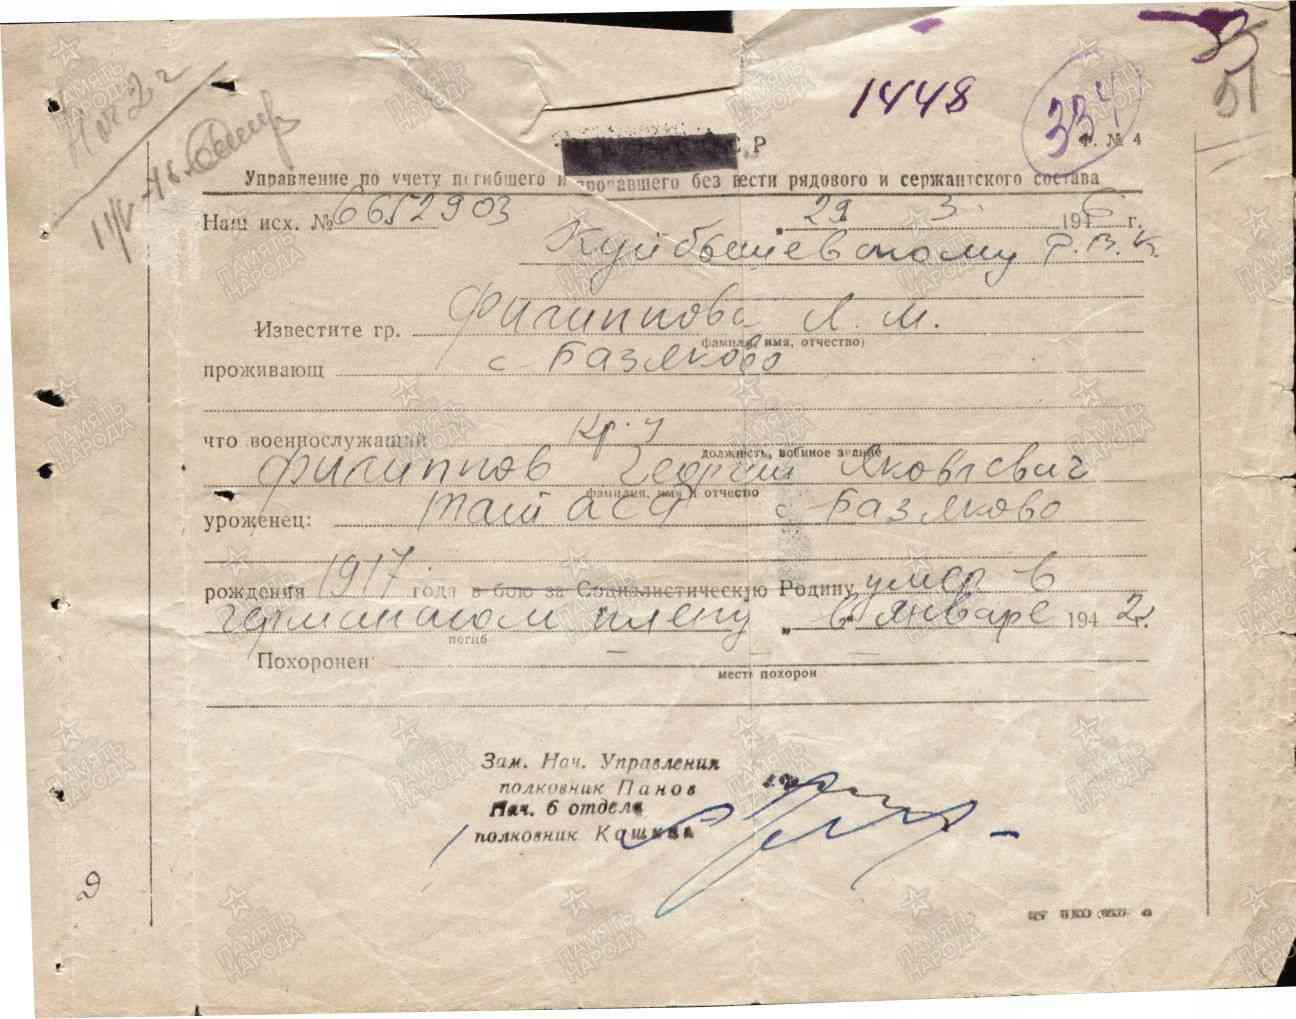 1448
334
33
51
С Р
Ф. № 4
Управление по учету погибшего и пропавшего без вести рядового и сержантского состава
Наш исх. № 6652903 „ 29 3. 1946 г.
Куйбышевскому Р.В.К.
Известите гр. Филиппова Л. М.
(фамилия, имя, отчество)
проживающ с. Базяково
что военнослужащий кр-ц
должность, военное звание
Филиппов Георгий Яковлевич
фамилия, имя и отчество
уроженец: Тат АССР с Базяково
рождения 1917 года в бою за Социалистическую Родину умер в
германском плену „ в январе 1942 г.
погиб
Похоронен —
место похорон
Зам. Нач. Управления
полковник Панов
Нач. 6 отдела
полковник Кашков
9
ПАМЯТЬ НАРОДА